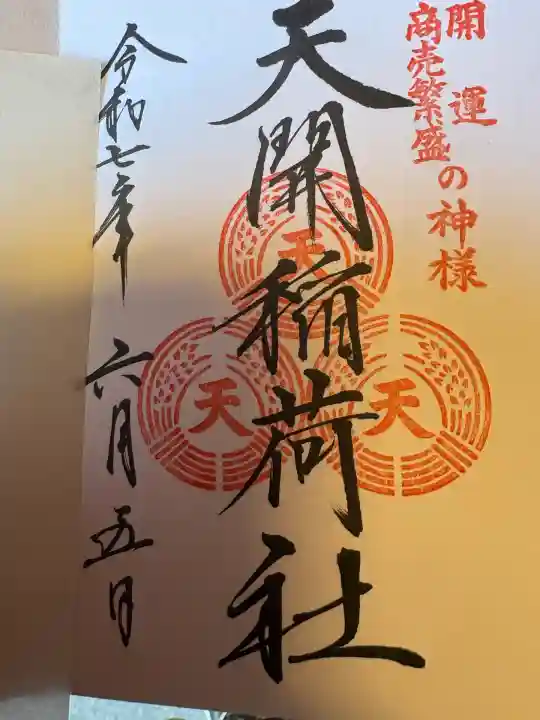 開運
商売繁盛
の神様
天開稲荷社
天
天
天
令和七年 六月五日